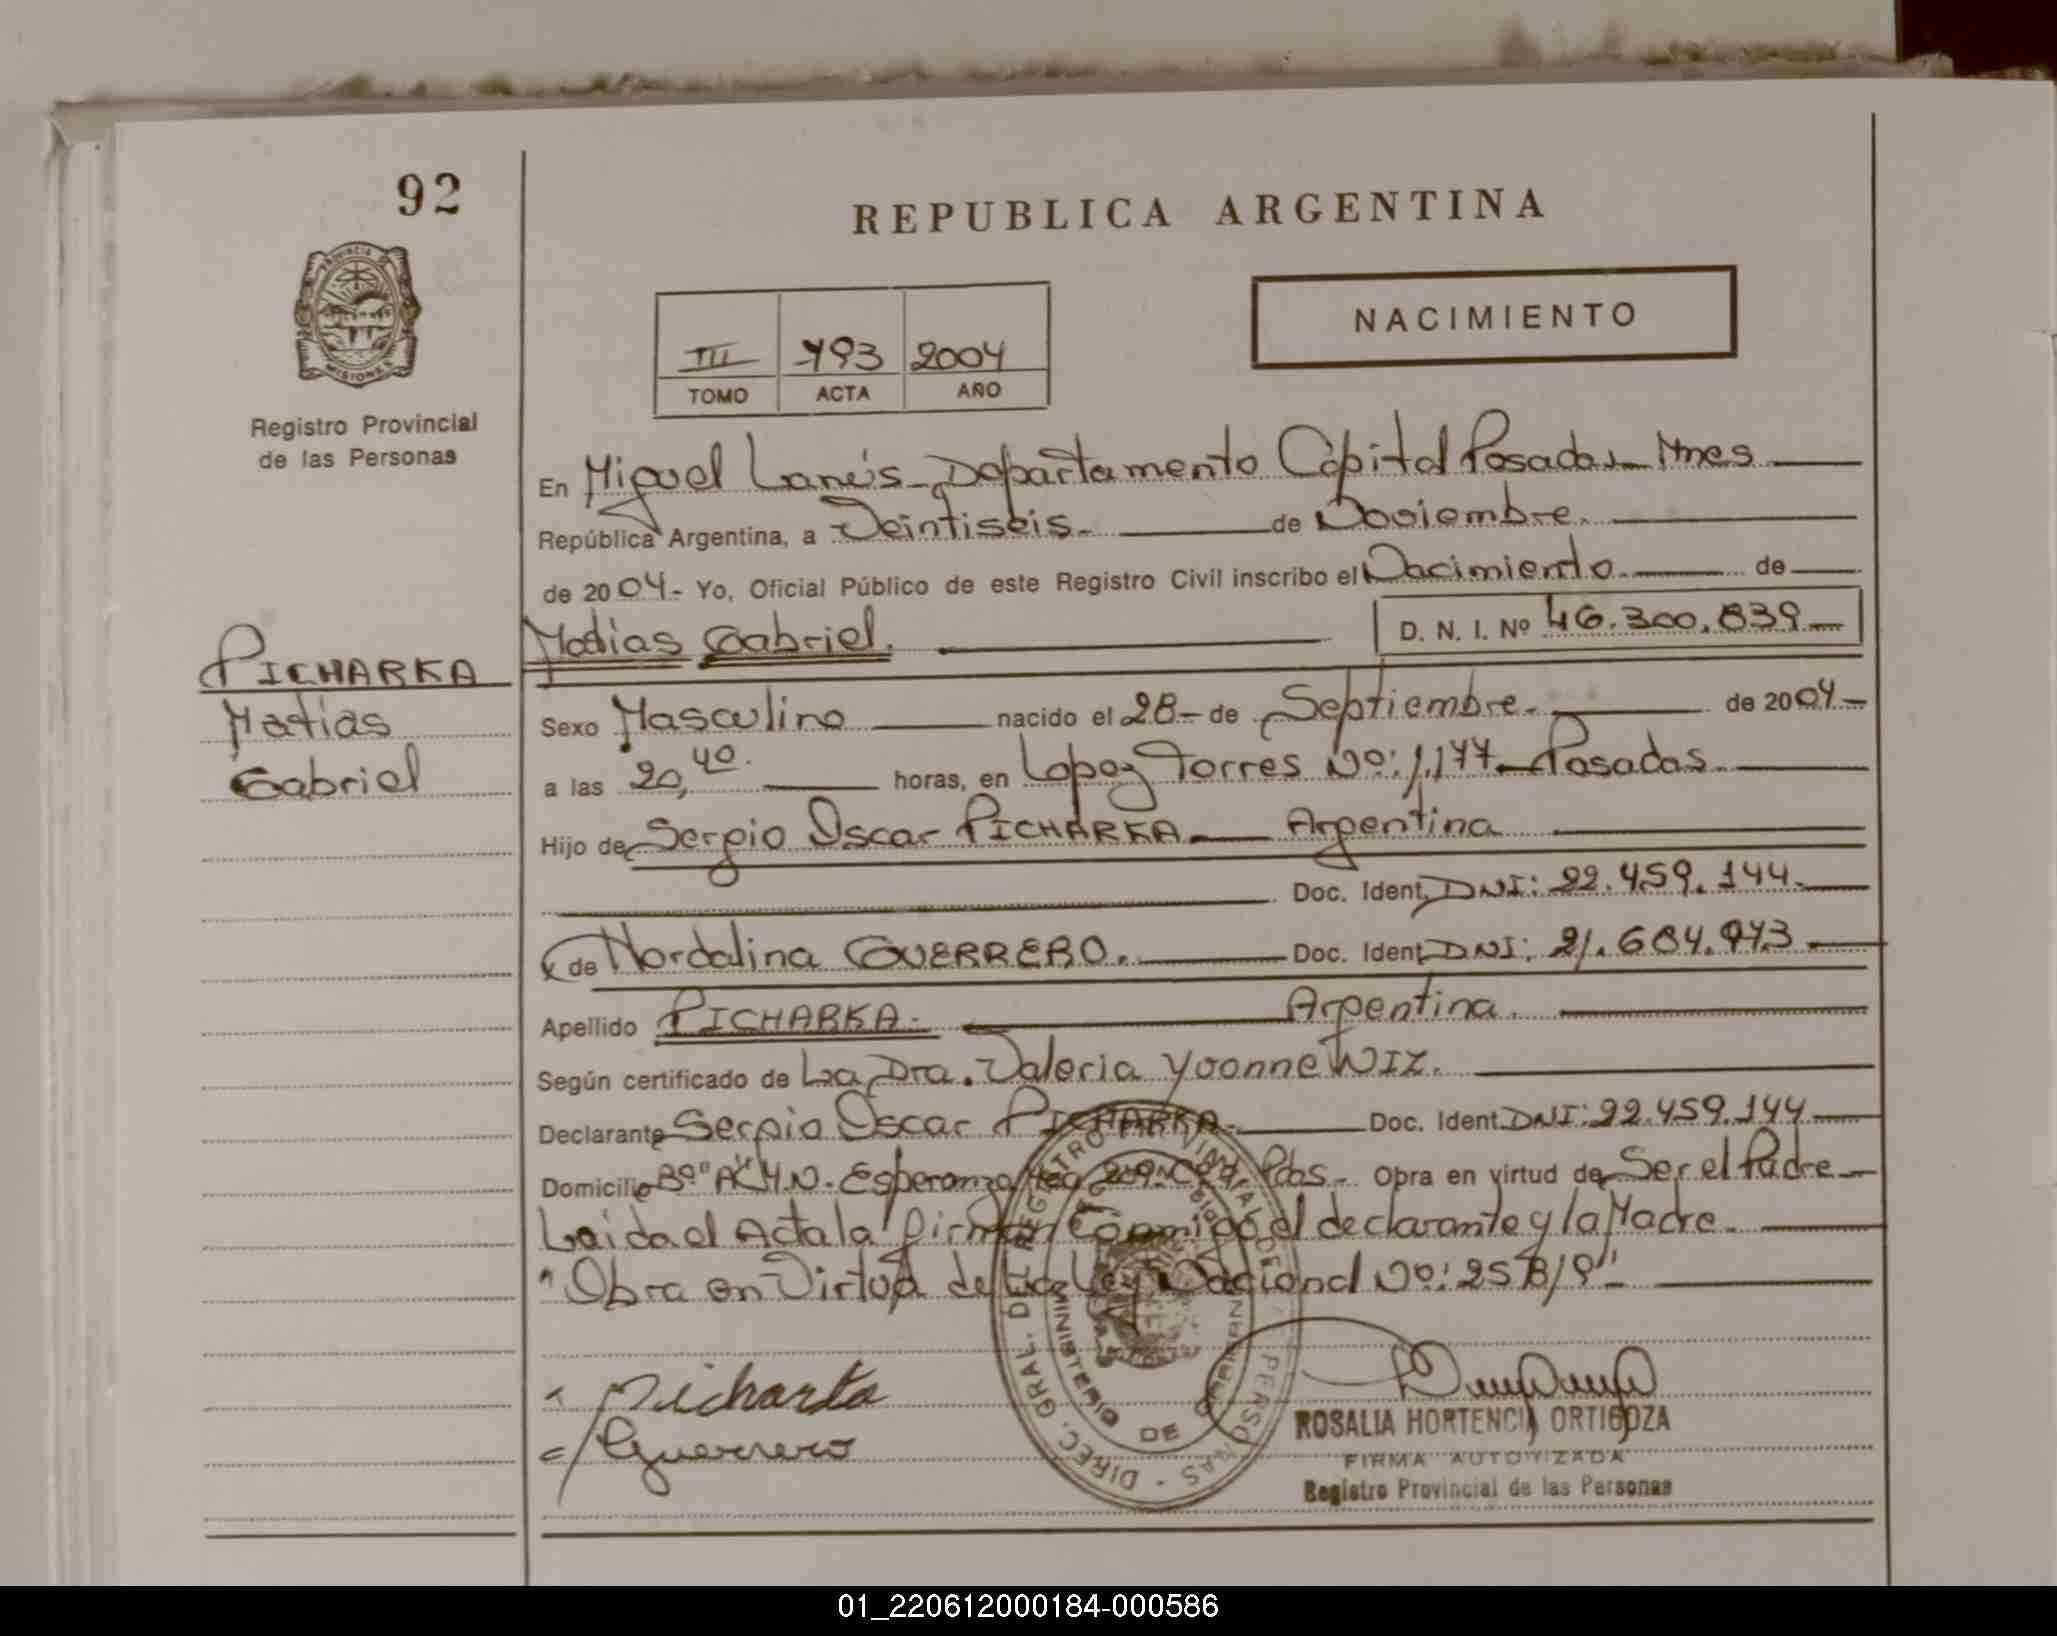 92
REPUBLICA ARGENTINA
PROVINCIA DE MISIONES
Registro Provincial
de las Personas
III 793 2004
TOMO ACTA AÑO
NACIMIENTO
En Miguel Lanús - Departamento Capital Posadas - Mnes
República Argentina, a Veintiseis - de Noviembre.
de 2004 - Yo, Oficial Público de este Registro Civil inscribo el Nacimiento de
Matias Gabriel. D. N. I. Nº 46.300.839
PICHARKA
Matias
Gabriel
Sexo Masculino nacido el 28 - de Septiembre - de 2004 -
a las 20,40. horas, en Lopez Torres Nº: 1.177 - Posadas
Hijo de Sergio Oscar PICHARKA Argentina
Doc. Ident. DNI: 22.459.144.
y de Nordalina GUERRERO. Doc. Ident. DNI: 21.684.973
Apellido PICHARKA. Argentina.
Según certificado de La Dra. Valeria Yvonne WIZ.
Declarante Sergio Oscar PICHARKA. Doc. Ident. DNI: 22.459.144
Domicilio Bº "A" 4. N. Esperanza 209 Pdas - Obra en virtud de Ser el Padre
Leida el Acta la firman Conmigo el declarante y la Madre.
"Obra en Virtud de Ley Nacional Nº: 25819"
Picharka
Guerrero
DIREC. GRAL. DEL REGISTRO PROVINCIAL DE LAS PERSONAS
MINISTERIO DE GOBIERNO
ROSALIA HORTENCIA ORTIGOZA
FIRMA AUTORIZADA
Registro Provincial de las Personas
01_220612000184-000586